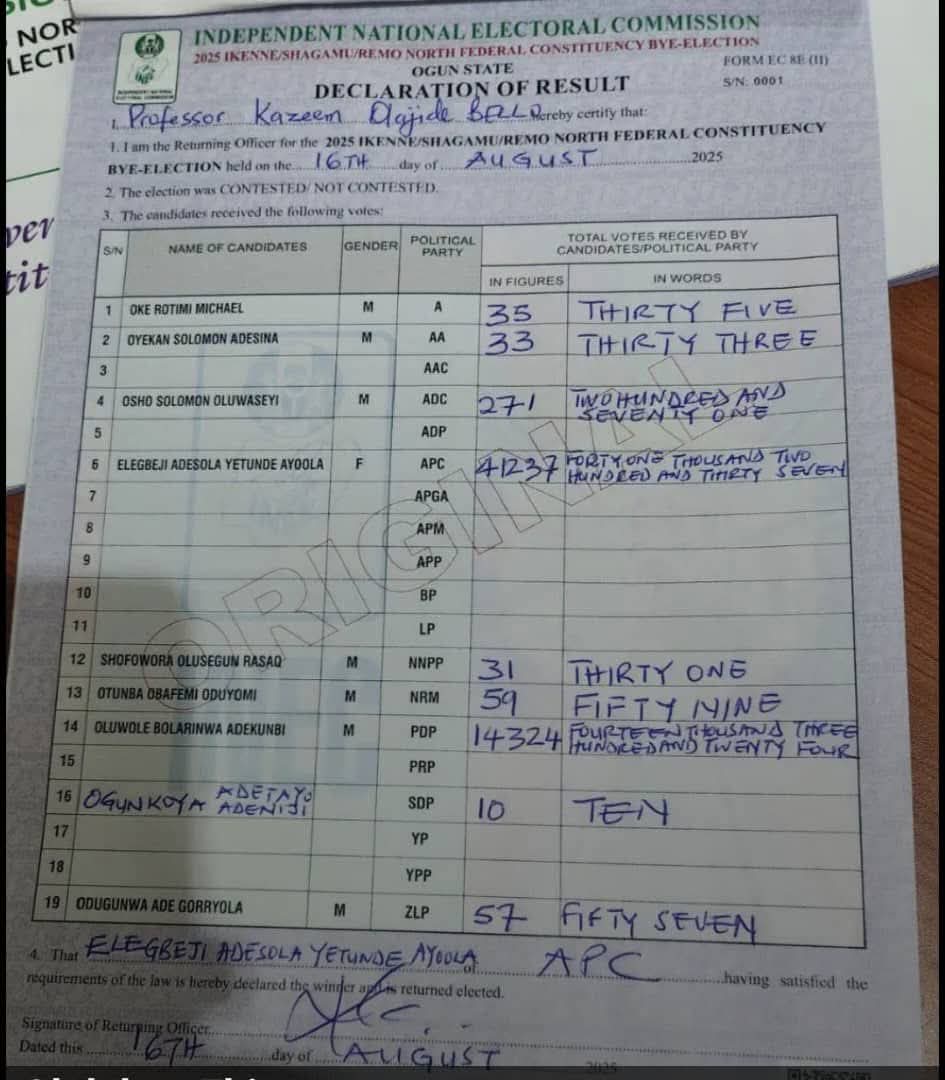 NOR
LECTI
ver
tit
INDEPENDENT NATIONAL ELECTORAL COMMISSION
2025 IKENNE/SHAGAMU/REMO NORTH FEDERAL CONSTITUENCY BYE-ELECTION
OGUN STATE
FORM EC 8E (II)
DECLARATION OF RESULT
S/N: 0001
I, Professor Kazeem Olajide BELLO hereby certify that:
1. I am the Returning Officer for the 2025 IKENNE/SHAGAMU/REMO NORTH FEDERAL CONSTITUENCY
BYE-ELECTION held on the 16TH day of AUGUST 2025
2. The election was CONTESTED/ NOT CONTESTED.
3. The candidates received the following votes:
S/N NAME OF CANDIDATES GENDER POLITICAL PARTY TOTAL VOTES RECEIVED BY CANDIDATES/POLITICAL PARTY
IN FIGURES IN WORDS
1 OKE ROTIMI MICHAEL M A 35 THIRTY FIVE
2 OYEKAN SOLOMON ADESINA M AA 33 THIRTY THREE
3 AAC
4 OSHO SOLOMON OLUWASEYI M ADC 271 TWO HUNDRED AND SEVENTY ONE
5 ADP
6 ELEGBEJI ADESOLA YETUNDE AYOOLA F APC 41237 FORTY ONE THOUSAND TWO HUNDRED AND THIRTY SEVEN
7 APGA
8 APM
9 APP
10 BP
11 LP
12 SHOFOWORA OLUSEGUN RASAQ M NNPP 31 THIRTY ONE
13 OTUNBA OBAFEMI ODUYOMI M NRM 59 FIFTY NINE
14 OLUWOLE BOLARINWA ADEKUNBI M PDP 14324 FOURTEEN THOUSAND THREE HUNDRED AND TWENTY FOUR
15 PRP
16 OGUNKOYA ADETAYO ADENIJI SDP 10 TEN
17 YP
18 YPP
19 ODUGUNWA ADE GORRYOLA M ZLP 57 FIFTY SEVEN
ORIGINAL
4. That ELEGBEJI ADESOLA YETUNDE AYOOLA of APC having satisfied the
requirements of the law is hereby declared the winner and is returned elected.
Signature of Returning Officer
Dated this 16TH day of AUGUST 2025